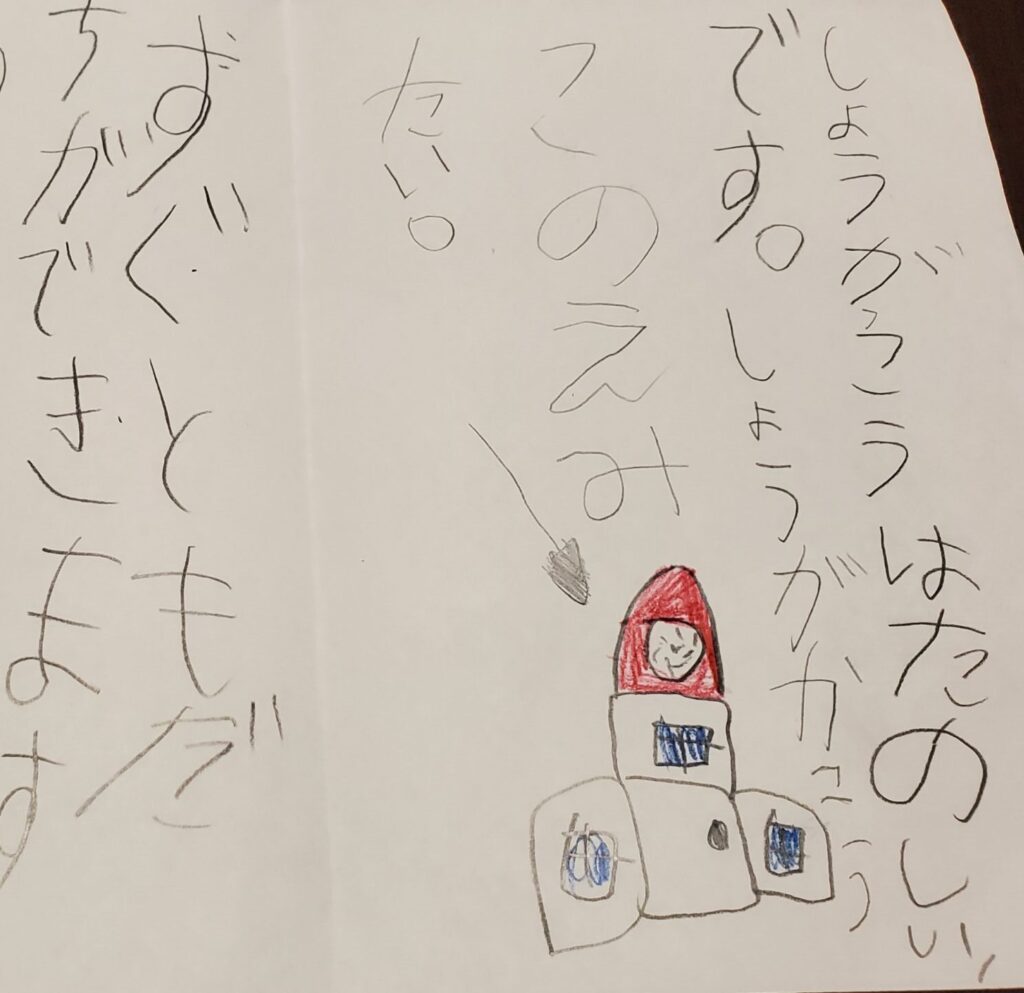 しょうがこうはたのしい、
です。しょうがかこう
このえみ
たい。
ずぐともだ
ちができます